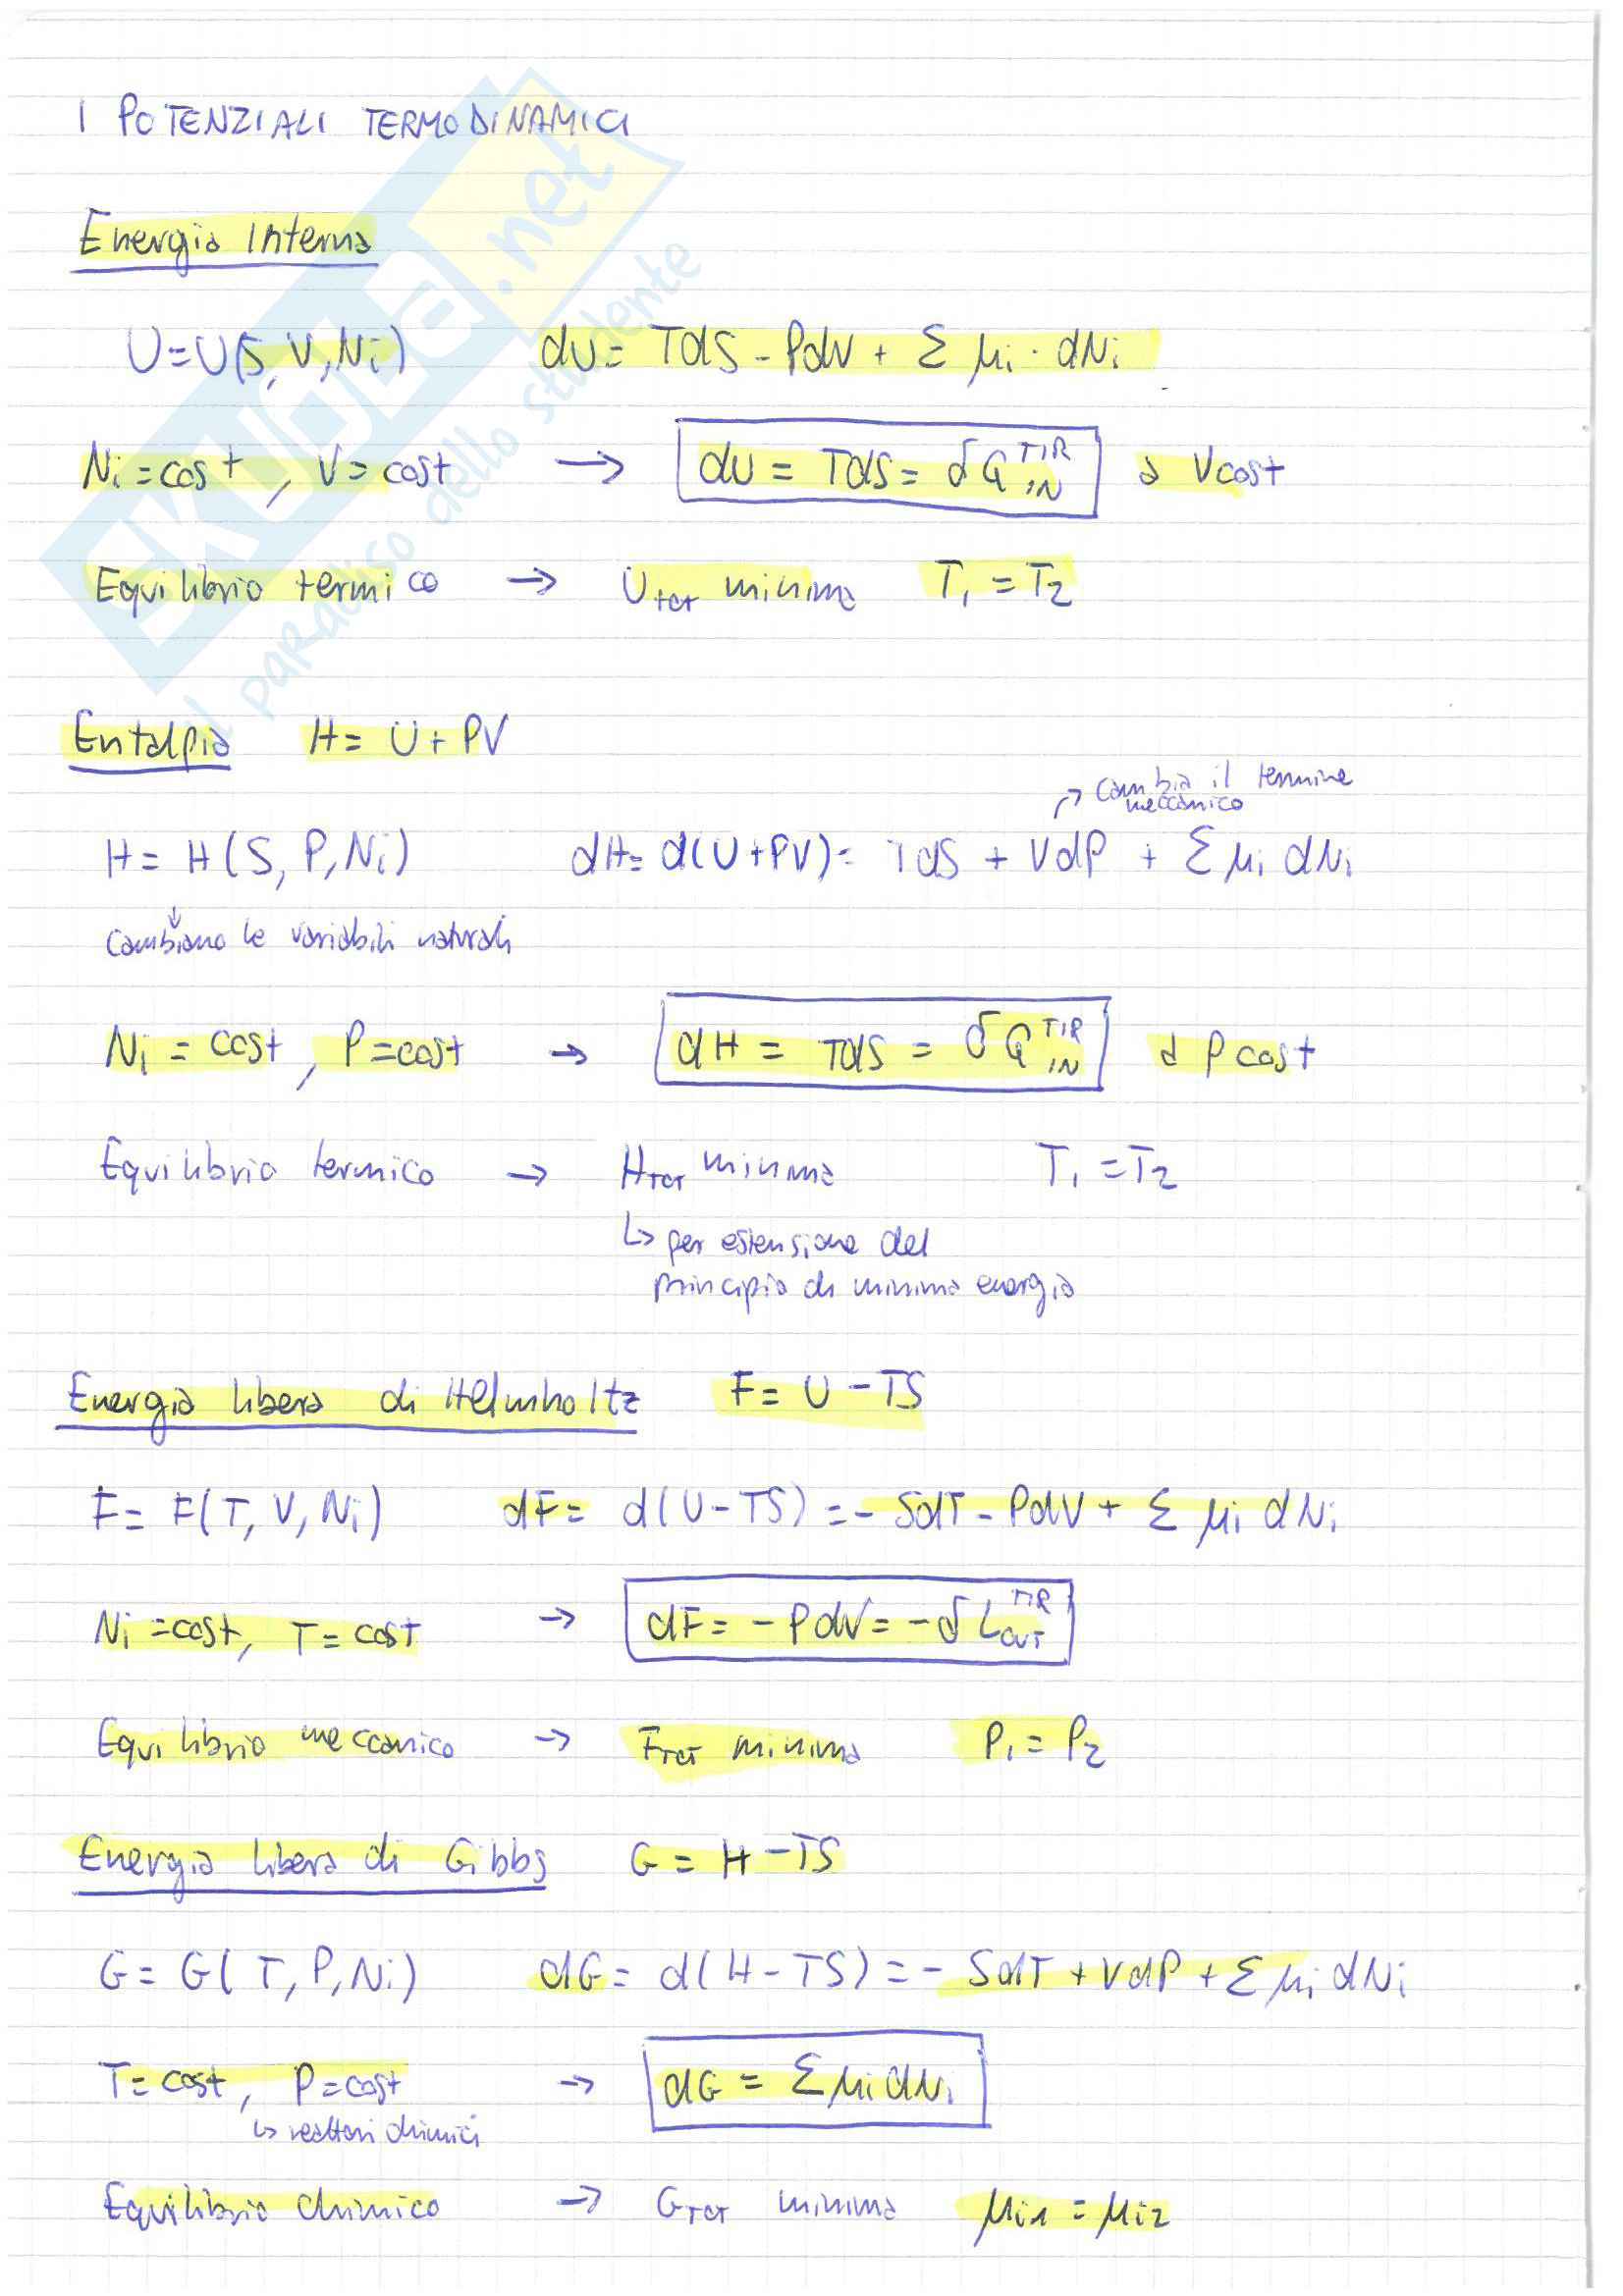 I POTENZIALI TERMODINAMICI
Energia Interna
U=U(S,V,Ni) dU= TdS - PdV + Σ μi · dNi
Ni = cost, V = cost → dU = TdS = δQ^TIR_IN a V cost
Equilibrio termico → U_TOT minima T1 = T2
Entalpia H= U + PV
↗ cambia il termine meccanico
H= H(S, P, Ni) dH= d(U+PV)= TdS + VdP + Σ μi dNi
↓
cambiano le variabili naturali
Ni = cost, P=cost → dH = TdS = δQ^TIR_IN a P cost
Equilibrio termico → H_TOT minima T1 = T2
↳ per estensione del
principio di minima energia
Energia libera di Helmholtz F= U - TS
F= F(T, V, Ni) dF= d(U-TS) = - SdT - PdV + Σ μi dNi
Ni = cost, T = cost → dF = - PdV = - δL^TIR_OUT
Equilibrio meccanico → F_TOT minima P1 = P2
Energia libera di Gibbs G = H - TS
G= G(T, P, Ni) dG= d(H-TS) = - SdT + VdP + Σ μi dNi
T= cost, P=cost → dG = Σ μi dNi
↳ reattori chimici
Equilibrio chimico → G_TOT minima μi1 = μi2
SKUOLA.net
il paradiso dello studente